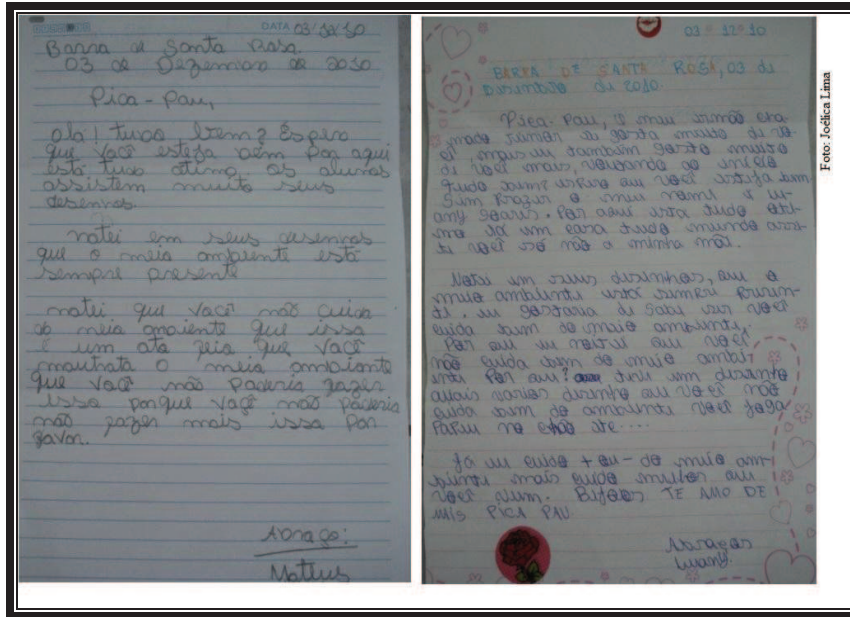 DATA 03/12/10
Barra de Santa Rosa
03 de Dezembro de 2010
Pica-Pau,
olá! tudo bem? Espero
que você esteja bem por aqui
está tudo ótimo os alunos
assistem muito seus
desenhos.
notei em seus desenhos
que o meio ambiente está
sempre presente
notei que você não cuida
do meio ambiente que isso
é um ato feio que você
mautrata o meio ambiente
que você não poderia fazer
isso porque você não poderia
não fazer mais isso por
favor.
Abraço:
Mateus
03 12 10
BARRA DE SANTA ROSA, 03 de
Dezembro de 2010.
Pica-Pau, o meu irmão cha
mado gosta muito de vo
cê, mais eu também gosto muito
de você mais, voutando ao início
tudo bem espero que você esteja bem
o meu nome é lu
any soares. Por aqui esta tudo oti
mo lá em casa todo mundo assis
ti você só não a minha mãe.
Notei em seus desinhos, que o
meio ambiente está sempre presen
te. eu gostaria di sabe ser você
cuida bem do meio ambiente,
Por que eu notei que você
não cuida bem do meio ambi
ente Por que? tem um desenho
varios desenho que você não
cuida bem do ambiente você joga
papeu no chão ate....
Já eu cuido + ou - do meio am-
biente mais cuido melhor que
você Beijos TE AMO DE
MIS PICA PAU
Abraços
Luany.
Foto: Joélica Lima